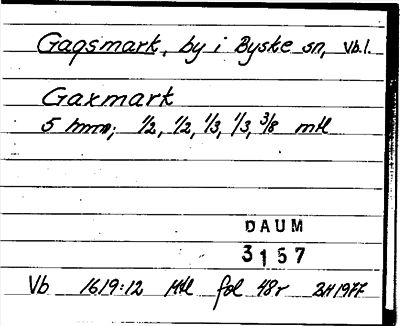 Gagsmark, by i Byske sn, Vb.l.
Gaxmark
5 hmn; 1/2, 1/2, 1/3, 1/3, 3/8 mtl
DAUM
3157
Vb 1619:12 Mtl fol 48r 2H1977